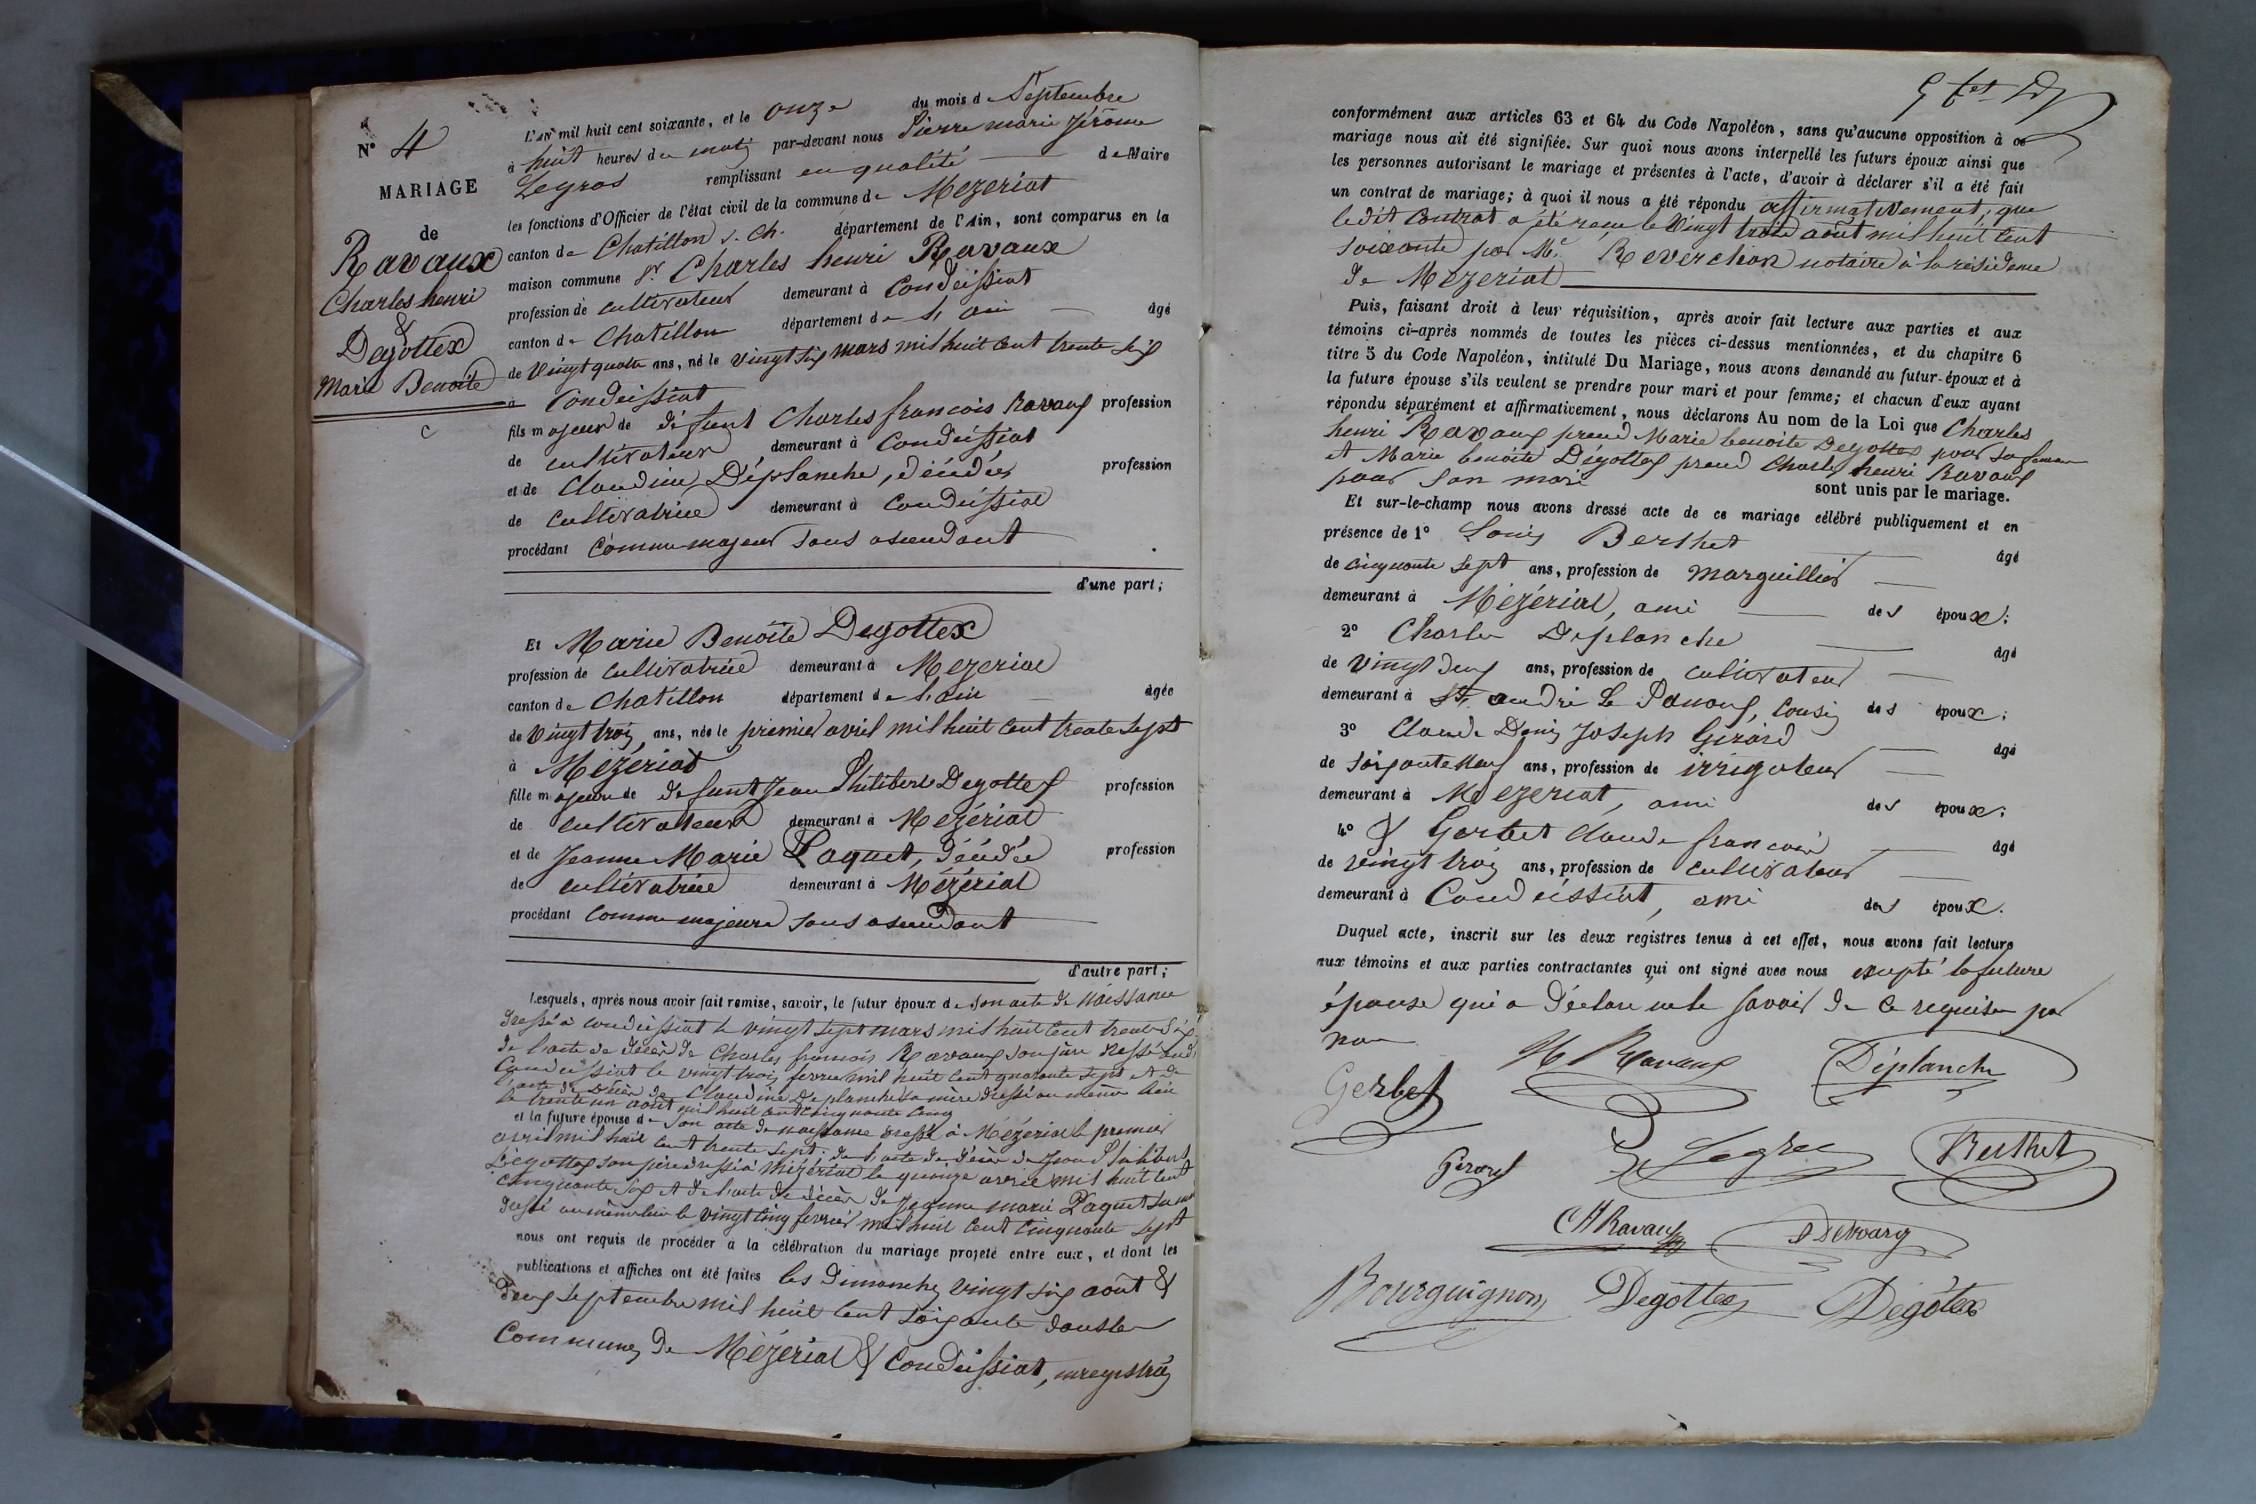 N° 4
MARIAGE
de
Ravaux
Charles henri
&
Degottex
Marie Benoite
L'an mil huit cent soixante, et le onze du mois d Septembre
à huit heures du matin par-devant nous Pierre marie jérôme
Legras remplissant en qualité de Maire
les fonctions d'Officier de l'état civil de la commune de Mezeriat
canton de Chatillon s. Ch. département de l'Ain, sont comparus en la
maison commune Sr Charles henri Ravaux
profession de cultivateur demeurant à Condeissiat
canton de Chatillon département de l'ain âgé
de Vingt quatre ans, né le vingt six mars mil huit cent trente six
à Condeissiat
fils majeur de défunt Charles francois Ravaux profession
de cultivateur demeurant à Condeissiat
et de Claudine Déplanche, décédée profession
de Cultivatrice demeurant à Condeissiat
procédant comme majeur sans ascendant
d'une part;
Et Marie Benoite Degottex
profession de cultivatrice demeurant à Mezeriat
canton de Chatillon département de l'ain âgée
de Vingt trois ans, née le premier avril mil huit cent trente sept
à Mézériat
fille majeure de défunt Jean Philibert Degottex profession
de cultivateur demeurant à Mézériat
et de Jeanne Marie Paquet, décédée profession
de cultivatrice demeurant à Mézériat
procédant comme majeure sans ascendant
d'autre part;
Lesquels, après nous avoir fait remise, savoir, le futur époux de son acte de naissance
dressé à condeissiat le vingt sept mars mil huit cent trente six
de l'acte de décès de Charles francois Ravaux son père dressé audit
Condeissiat le vingt trois fevrier mil huit cent quarante sept et de
l'acte de décès de Claudine Deplanche sa mère dressé au même lieu
le trente un août mil huit cent cinquante cinq
et la future épouse de son acte de naissance dressé à Mézériat le premier
avril mil huit cent trente sept; de l'acte de décès de Jean Philibert
Dégottex son père dressé à Mézériat le quinze avril mil huit cent
cinquante six et de l'acte de décès de Jeanne marie Paquet sa mère
dressé au même lieu le vingt cinq fevrier mil huit cent cinquante sept
nous ont requis de procéder à la célébration du mariage projeté entre eux, et dont les
publications et affiches ont été faites les dimanches vingt six août &
deux septembre mil huit cent soixante dans les
communes de Mézériat & Condeissiat, enregistrés
conformément aux articles 63 et 64 du Code Napoléon, sans qu'aucune opposition à ce
mariage nous ait été signifiée. Sur quoi nous avons interpellé les futurs époux ainsi que
les personnes autorisant le mariage et présentes à l'acte, d'avoir à déclarer s'il a été fait
un contrat de mariage; à quoi il nous a été répondu affirmativement; que
ledit contrat a été reçu le Vingt trois août mil huit cent
soixante par Me Reverchon notaire à la résidence
de Mézeriat
Puis, faisant droit à leur réquisition, après avoir fait lecture aux parties et aux
témoins ci-après nommés de toutes les pièces ci-dessus mentionnées, et du chapitre 6
titre 5 du Code Napoléon, intitulé Du Mariage, nous avons demandé au futur-époux et à
la future épouse s'ils veulent se prendre pour mari et pour femme; et chacun d'eux ayant
répondu séparément et affirmativement, nous déclarons Au nom de la Loi que Charles
henri Ravaux prend Marie benoite Degottex pour sa femme
et Marie benoite Dégottex prend Charles henri Ravaux
pour son mari
sont unis par le mariage.
Et sur-le-champ nous avons dressé acte de ce mariage célébré publiquement et en
présence de 1° Louis Berthet âgé
de cinquante sept ans, profession de marguillier
demeurant à Mézériat, ami des époux;
2° Charles Déplanche âgé
de vingt deux ans, profession de cultivateur
demeurant à St andré Le Panoux, Cousin des époux;
3° Claude Denis Joseph Girard âgé
de soixante neuf ans, profession de irrigateur
demeurant à Mezeriat, ami des époux;
4° & Gerbet Claude francois âgé
de vingt trois ans, profession de cultivateur
demeurant à Condeissiat, ami des époux.
Duquel acte, inscrit sur les deux registres tenus à cet effet, nous avons fait lecture
aux témoins et aux parties contractantes qui ont signé avec nous excepté la future
épouse qui a déclaré ne le savoir de ce requise par
nous
Gerbet H Ravaux Déplanche
Girard Legras Berthet
CH Ravaux
Bourguignon Degottex Dégotex